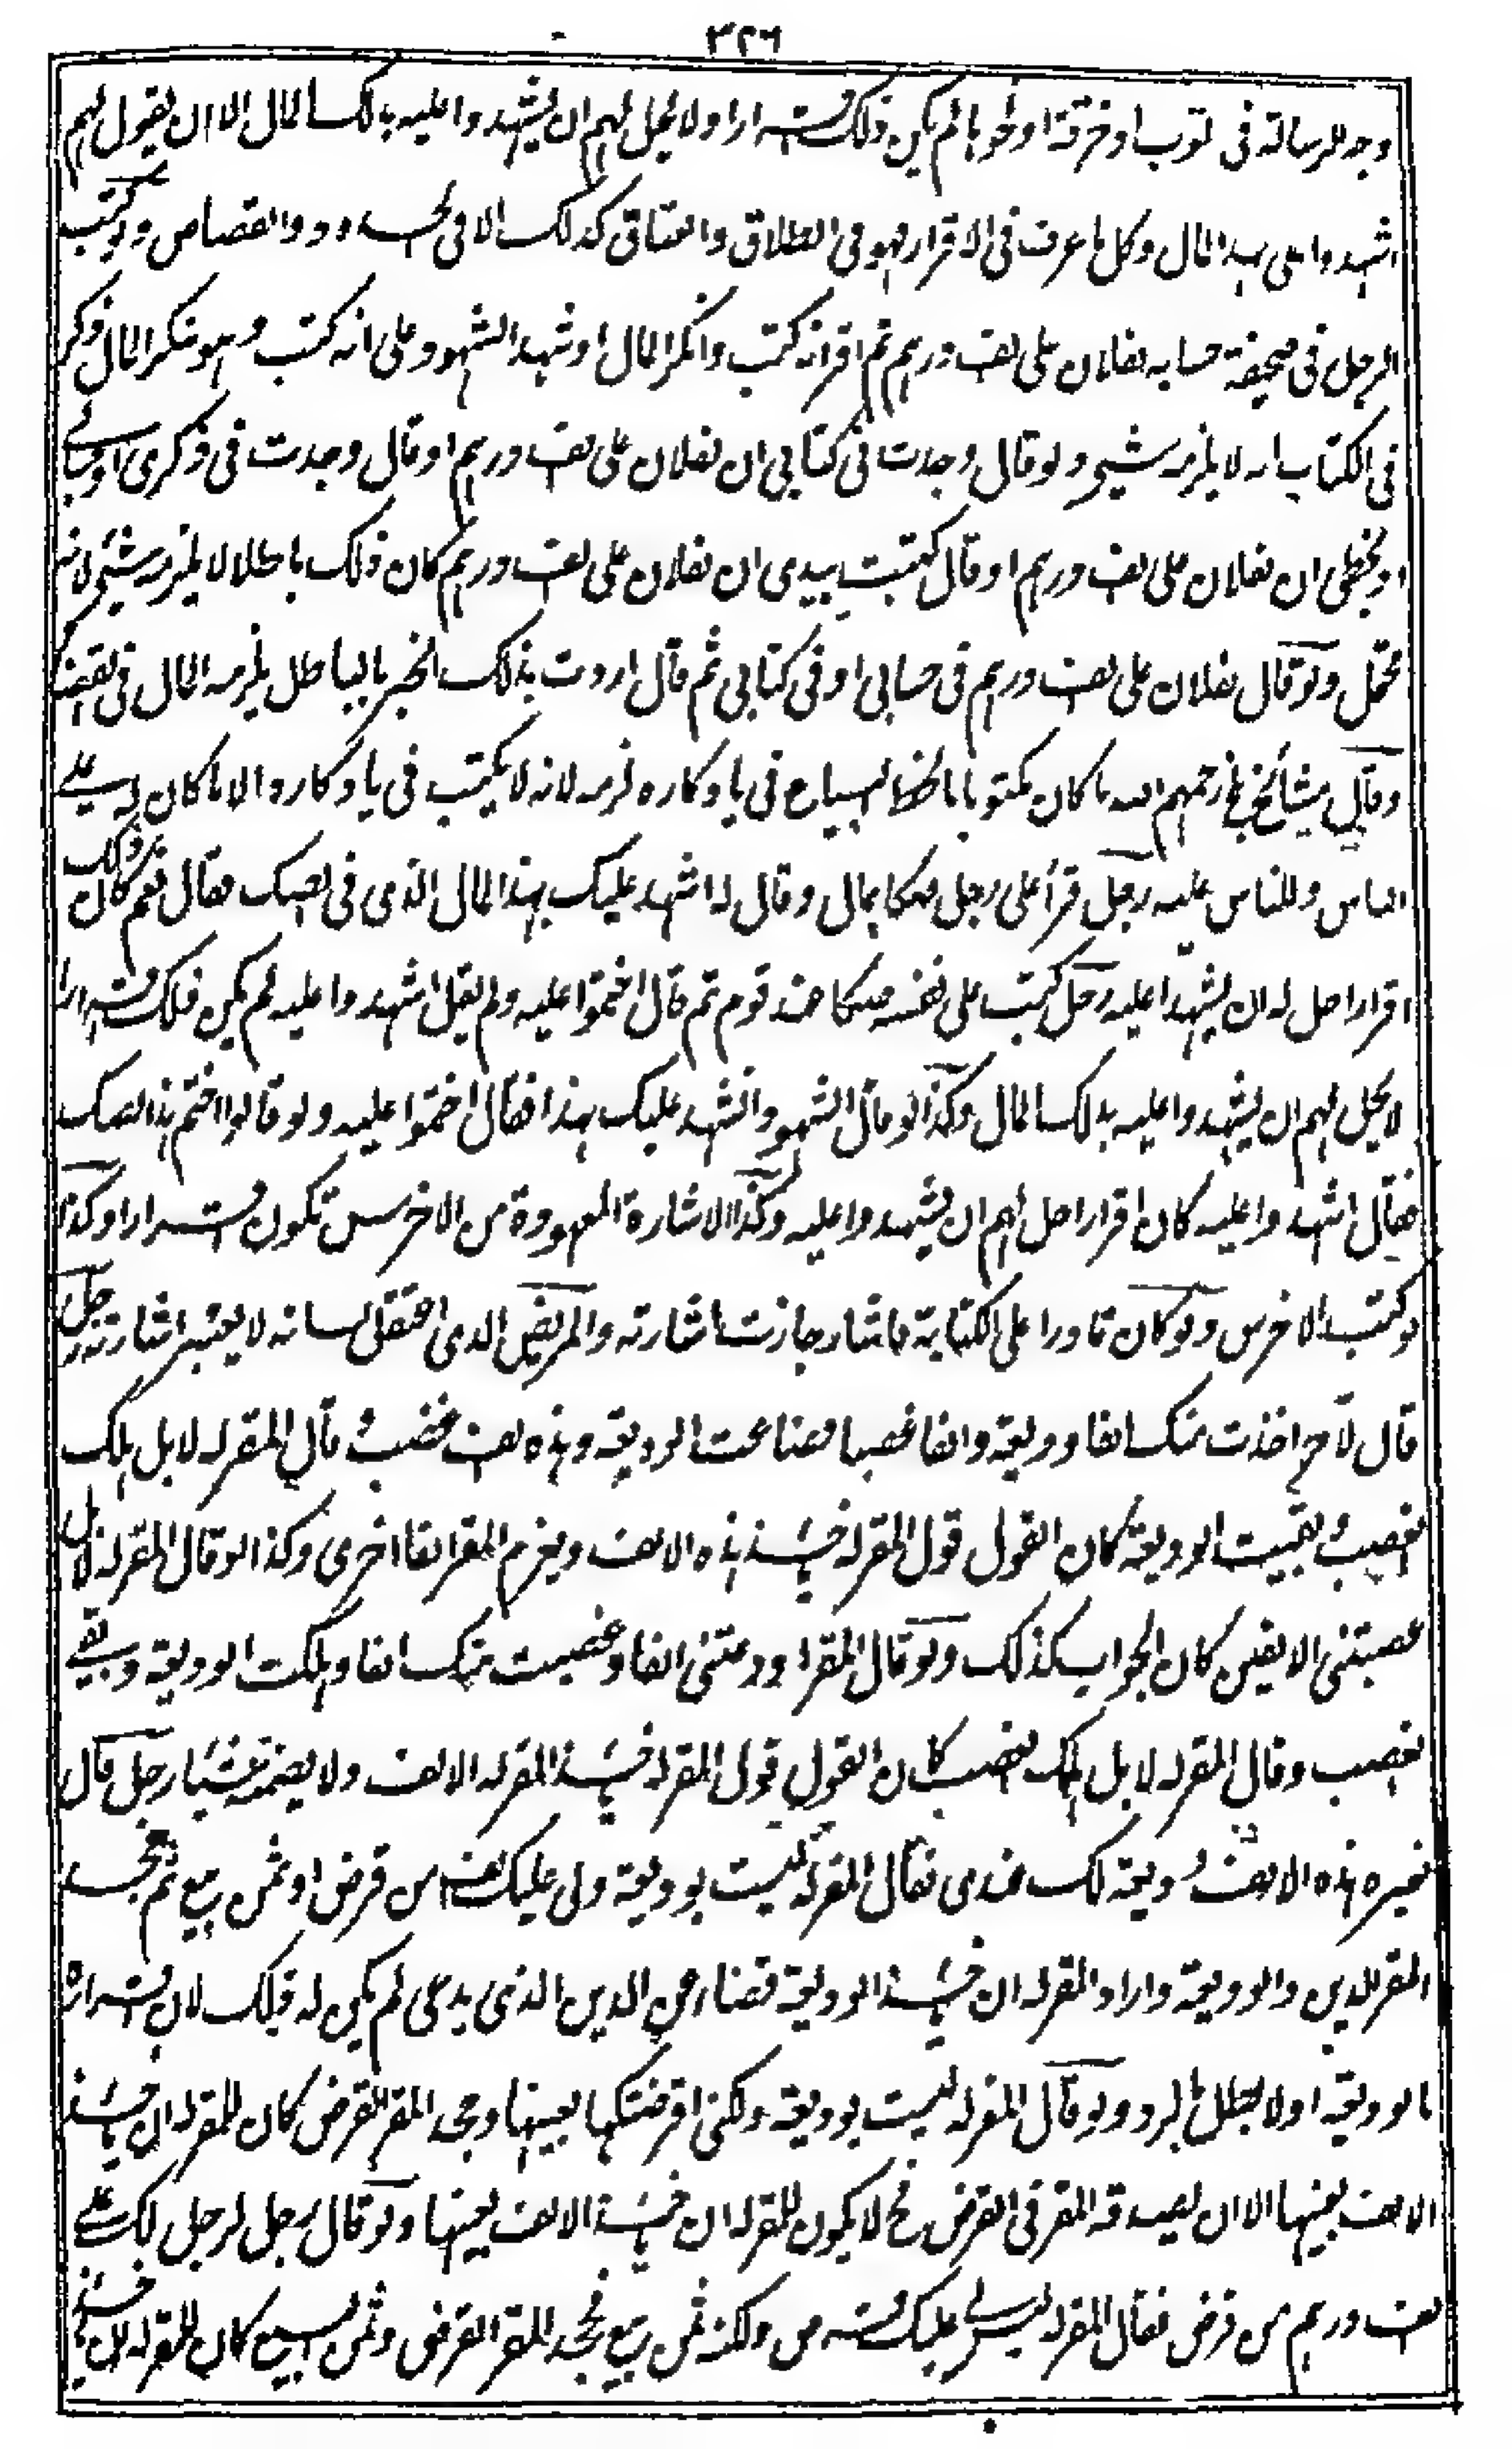 ٣٢٦
وجه الرسالة فى ثوب او خرقة او نحوها لم يكن ذلك اقرارا ولا يحل لهم ان يشهدوا عليه بذلك المال الا ان يقول لهم
اشهدوا على بهذا المال وكل ما عرف فى الاقرار فهو فى الطلاق والعتاق كذلك الا فى الحدود والقصاص ولو كتب
الرجل فى صحيفة حسابه لفلان على الف درهم ثم اقر انه كتب وانكر المال او شهد الشهود على انه كتب وهو منكر المال ذكر
فى الكتاب انه لا يلزمه شىء ولو قال وجدت فى كتابى ان لفلان على الف درهم او قال وجدت فى ذكرى او بحسابى
او بخطى ان لفلان على الف درهم او قال كتبت بيدى ان لفلان على الف درهم كان ذلك باطلا لا يلزمه شىء لانه
محتمل ولو قال لفلان على الف درهم فى حسابى او فى كتابى ثم قال اردت بذلك الخبر بالباطل يلزمه المال فى القضاء
وقال مشائخ بلخ رحمهم الله ما كان مكتوبا بخط البياع فى يادكاره لزمه لانه لا يكتب فى يادكاره الا ما كان له على
الناس وللناس عليه رجل قرأ على رجل صكا بمال وقال له اشهد عليك بهذا المال الذى فى الصك فقال نعم كان ذلك
اقرارا حل له ان يشهدا عليه رجل كتب على نفسه صكا عند قوم ثم قال اختموا عليه ولم يقل اشهدوا عليه لم يكن ذلك اقرارا
لا يحل لهم ان يشهدوا عليه بذلك المال وكذا لو قال الشهود انشهد عليك بهذا فقال اختموا عليه ولو قالوا اختم هذا الصك
فقال اشهدوا عليه كان اقرارا حل لهم ان يشهدوا عليه وكذا الاشارة المعهودة من الاخرس تكون اقرارا وكذا
لو كتب الاخرس ولو كان قادرا على الكتابة فاشار جازت اشارته والمريض الذى اعتقل لسانه لا يعتبر اشارته رجل
قال لآخر اخذت منك الفا وديعة والفا غصبا فضاعت الوديعة وهذه الف غصب و قال المقر له لا بل هلك
الغصب و بقيت الوديعة كان القول قول المقر له يأخذ هذه الالف ويغرم المقر الفا اخرى وكذا لو قال المقر له لا بل
غصبتنى الالفين كان الجواب كذلك ولو قال المقر اودعتنى الفا وغصبت منك الفا وهلكت الوديعة وبقى
الغصب وقال المقر له لا بل هلك الغصب كان القول قول المقر له يأخذ المقر له الالف ولا يضمنه شيئا رجل قال
لغيره هذه الالف وديعة لك عندى فقال المقر له ليست بوديعة ولى عليك الف من قرض او ثمن بيع ثم جحد
المقر الدين والوديعة واراد المقر له ان يأخذ الوديعة قضاء عن الدين الذى يدعى لم يكن له ذلك لان اقراره
بالوديعة اولا بطل بالرد ولو قال المقر له ليست بوديعة ولكنى اقرضتكها بعينها وجحد المقر القرض كان للمقر له ان يأخذ
الالف بعينها الا ان يصدقه المقر فى القرض فح لا يكون للمقر له ان يأخذ الالف بعينها ولو قال رجل لرجل لك على
الف درهم من قرض فقال المقر له ليس لى عليك قرض ولكنه ثمن بيع فجحد المقر القرض وثمن البيع كان للمقر له ان يأخذ